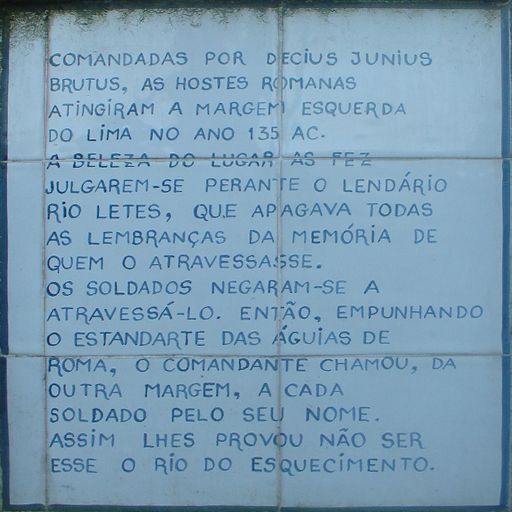 COMANDADAS POR DECIUS JUNIUS
BRUTUS, AS HOSTES ROMANAS
ATINGIRAM A MARGEM ESQUERDA
DO LIMA NO ANO 135 AC.
A BELEZA DO LUGAR AS FEZ
JULGAREM-SE PERANTE O LENDÁRIO
RIO LETES, QUE APAGAVA TODAS
AS LEMBRANÇAS DA MEMÓRIA DE
QUEM O ATRAVESSASSE.
OS SOLDADOS NEGARAM-SE A
ATRAVESSÁ-LO. ENTÃO, EMPUNHANDO
O ESTANDARTE DAS ÁGUIAS DE
ROMA, O COMANDANTE CHAMOU, DA
OUTRA MARGEM, A CADA
SOLDADO PELO SEU NOME.
ASSIM LHES PROVOU NÃO SER
ESSE O RIO DO ESQUECIMENTO.